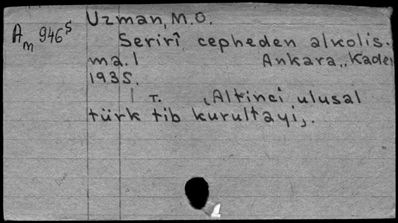 Uzman, M.O.
Am 946s
Serirî cepheden alkolis.
ma. | Ankara,, Kader
1935.
| T. (Altinci ulusal
türk tib kurultayi,.